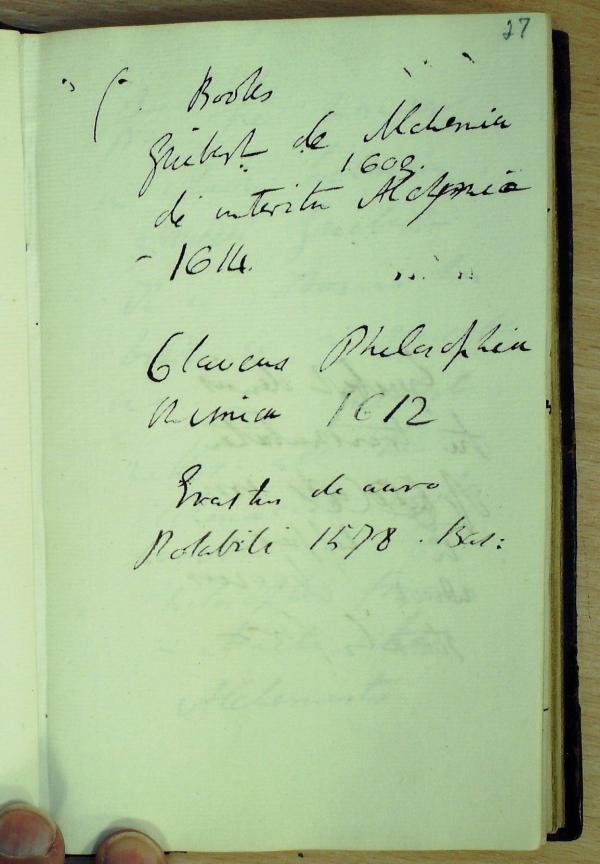 27
Books
Guibert de Alchemia
1600.
de interitu Alchymia
- 1614.
Claveus Philosophia
Chimica 1612
Erastus de auro
Potabili 1578. Bas: